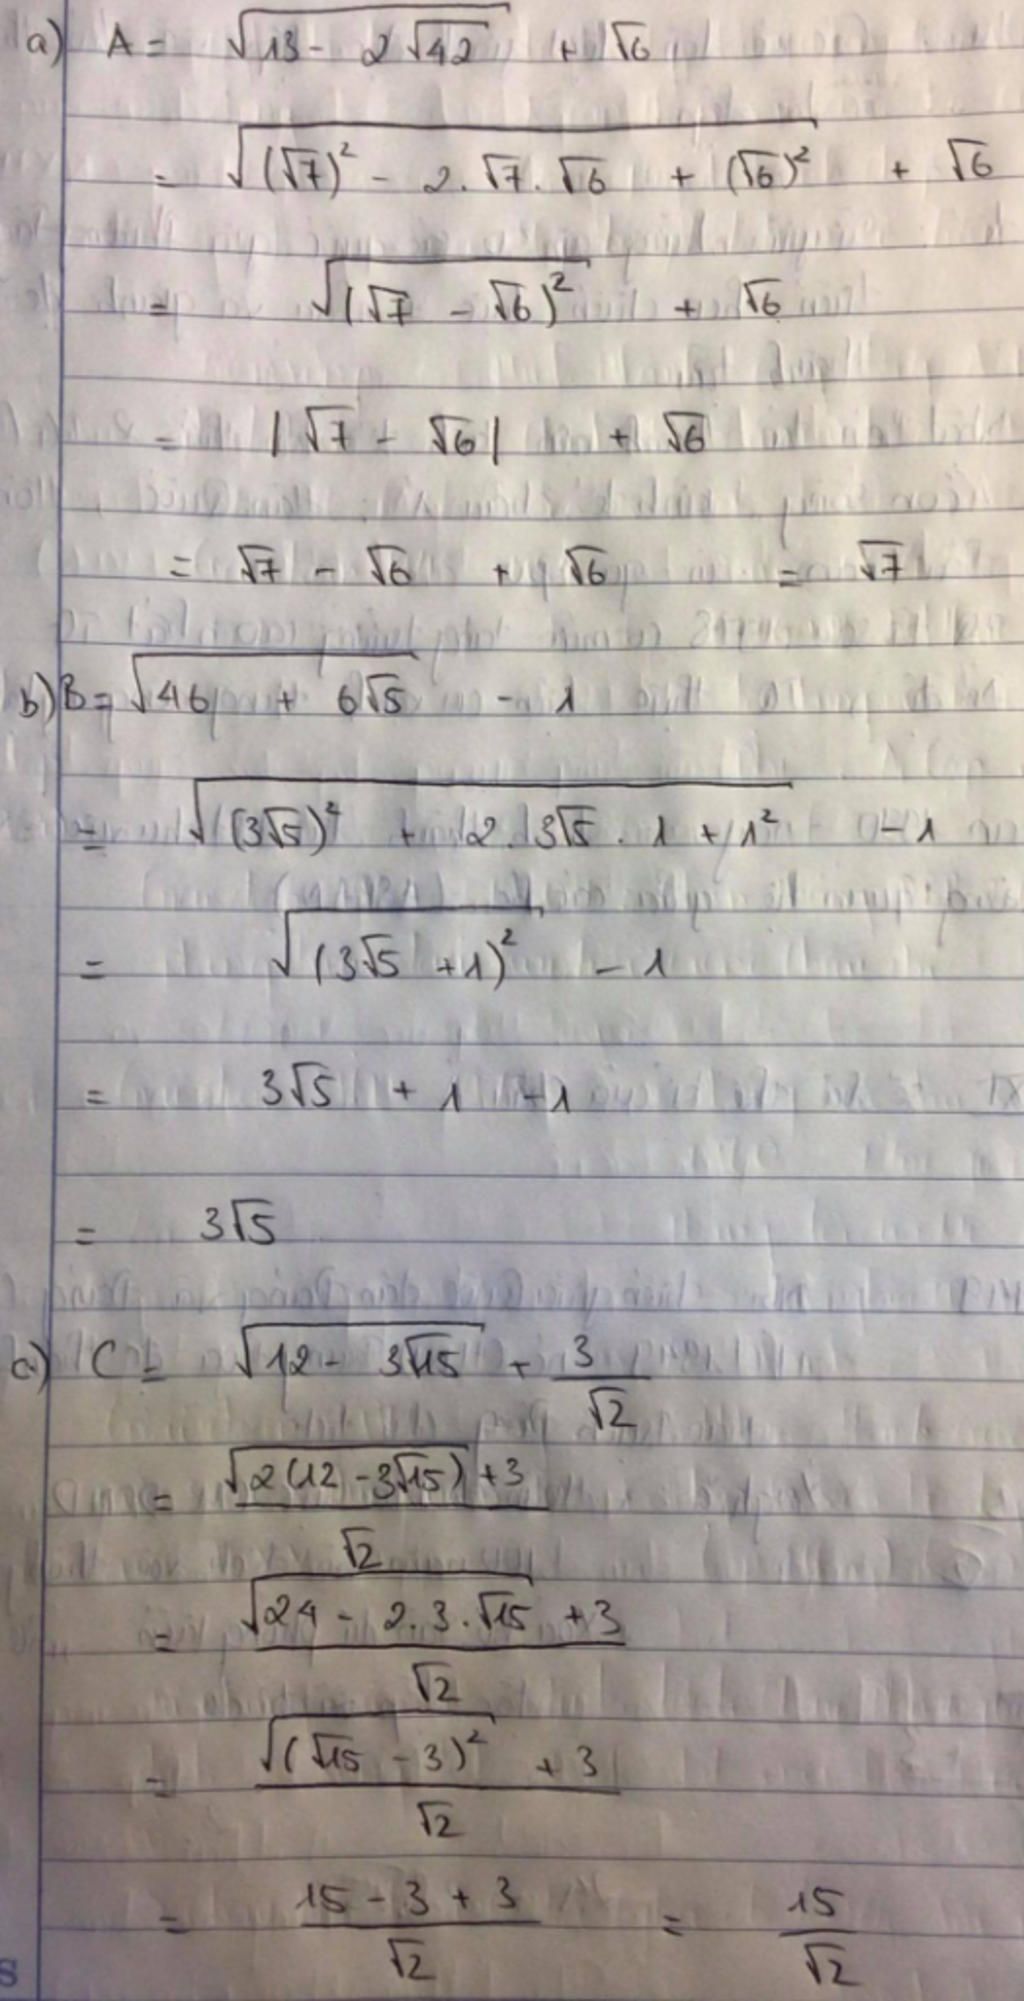 a) A = √(13 - 2√42) + √6
= √((√7)² - 2.√7.√6 + (√6)²) + √6
= √((√7 - √6)²) + √6
= |√7 - √6| + √6
= √7 - √6 + √6 = √7
b) B = √(46 + 6√5) - 1
= √((3√5)² + 2.3√5.1 + 1²) - 1
= √((3√5 + 1)²) - 1
= 3√5 + 1 - 1
= 3√5
c) C = √(12 - 3√15) + 3/√2
= (√(2(12 - 3√15)) + 3)/√2
= (√(24 - 2.3.√15) + 3)/√2
= (√((√15 - 3)²) + 3)/√2
= (15 - 3 + 3)/√2 = 15/√2